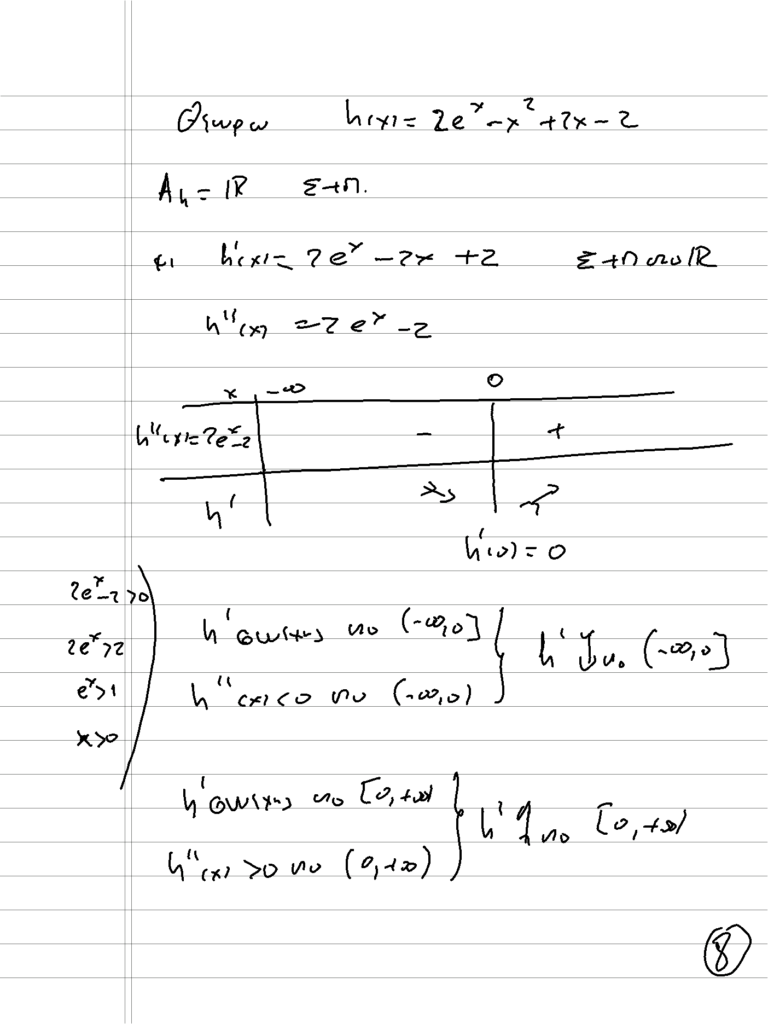 Θεωρω h(x) = 2e^x - x^2 + 2x - 2
A_h = ℝ Σ+Π.
κι h'(x) = 2e^x - 2x + 2 Σ+Π στο ℝ
h''(x) = 2e^x - 2
x -∞ 0
h''(x) = 2e^x - 2 - +
h' ↘ ↗
h'(0) = 0
2e^x - 2 > 0
2e^x > 2
e^x > 1
x > 0
h' συνεχης στο (-∞,0] } h' ↓ στο (-∞,0]
h''(x) < 0 στο (-∞,0)
h' συνεχης στο [0,+∞) } h' ↑ στο [0,+∞)
h''(x) > 0 στο (0,+∞)
8